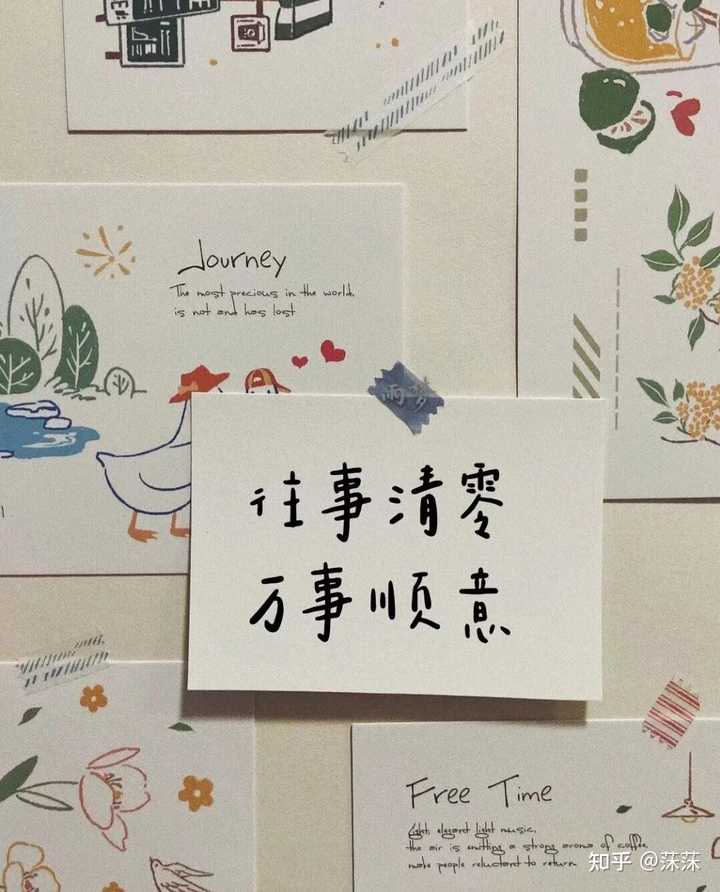 Journey
The most precious in the world,
is not and has lost
雨梦
往事清零
万事顺意
Free Time
Light, elegant light music,
the air is emitting a strong aroma of coffee,
make people reluctant to return
知乎 @莯莯